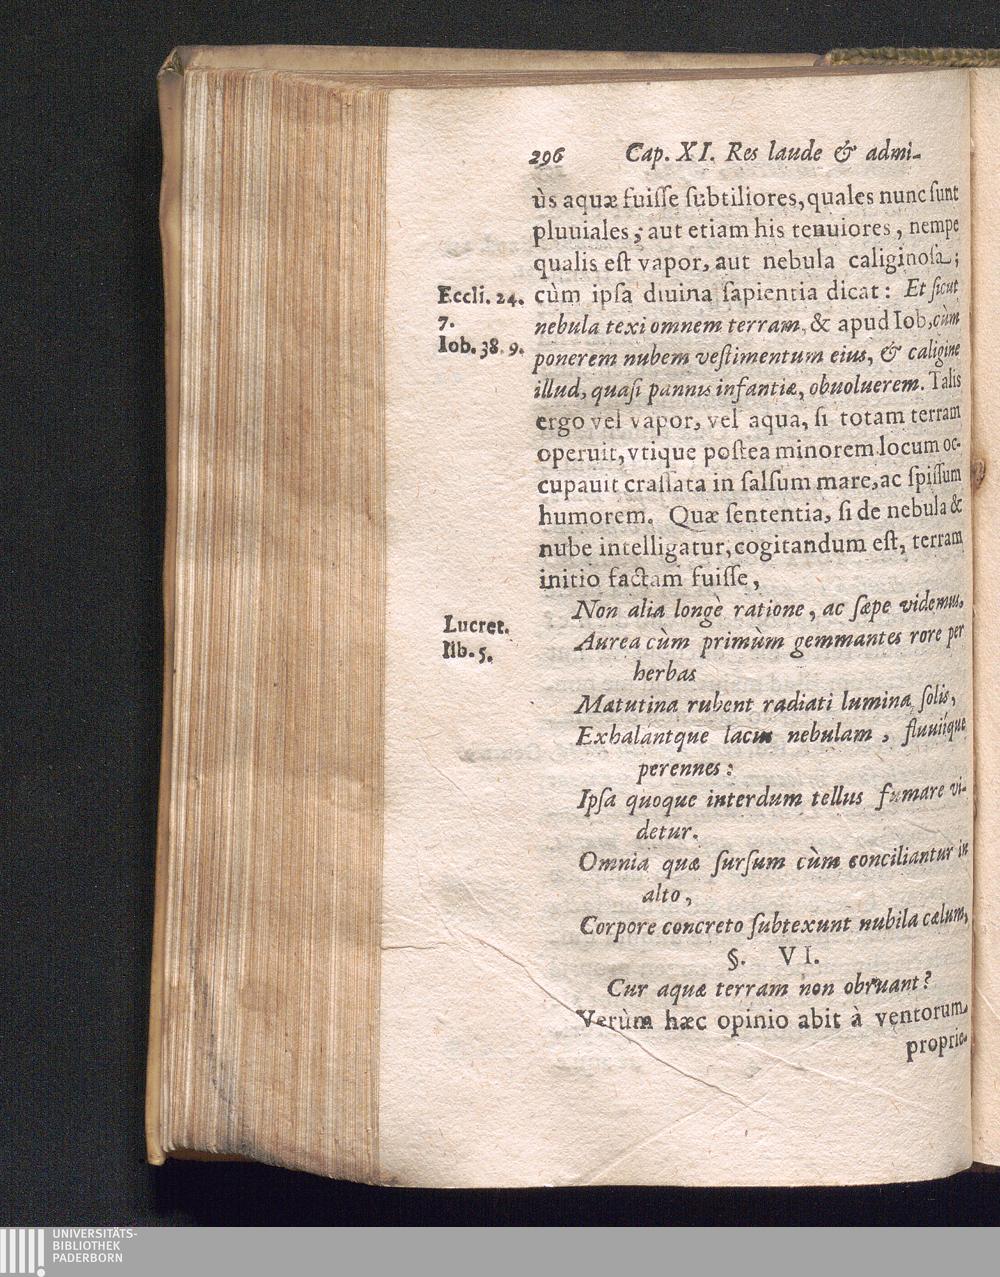 296 Cap. XI. Res laude & admi-
ùs aquæ fuiſſe ſubtiliores, quales nunc ſunt
pluuiales; aut etiam his tenuiores, nempe
qualis eſt vapor, aut nebula caliginoſa;
Eccli. 24. cùm ipſa diuina ſapientia dicat: Et ſicut
7. nebula texi omnem terram, & apud Iob, cùm
Iob. 38. 9. ponerem nubem veſtimentum eius, & caligine
illud, quaſi pannis infantiæ, obuoluerem. Talis
ergo vel vapor, vel aqua, ſi totam terram
operuit, vtique poſtea minorem locum oc-
cupauit craſſata in ſalſum mare, ac ſpiſſum
humorem. Quæ ſententia, ſi de nebula &
nube intelligatur, cogitandum eſt, terram
initio factam fuiſſe,
Non alia longè ratione, ac ſæpe videmus.
Lucret. Aurea cùm primùm gemmantes rore per
lib. 5. herbas
Matutina rubent radiati lumina ſolis,
Exhalántque lacus nebulam, fluuiíque
perennes:
Ipſa quoque interdum tellus fumare vi-
detur.
Omnia quæ ſurſum cùm conciliantur in
alto,
Corpore concreto ſubtexunt nubila cælum,
§. VI.
Cur aquæ terram non obruant?
Verùm hæc opinio abit à ventorum
proprie-
UNIVERSITÄTS-
BIBLIOTHEK
PADERBORN